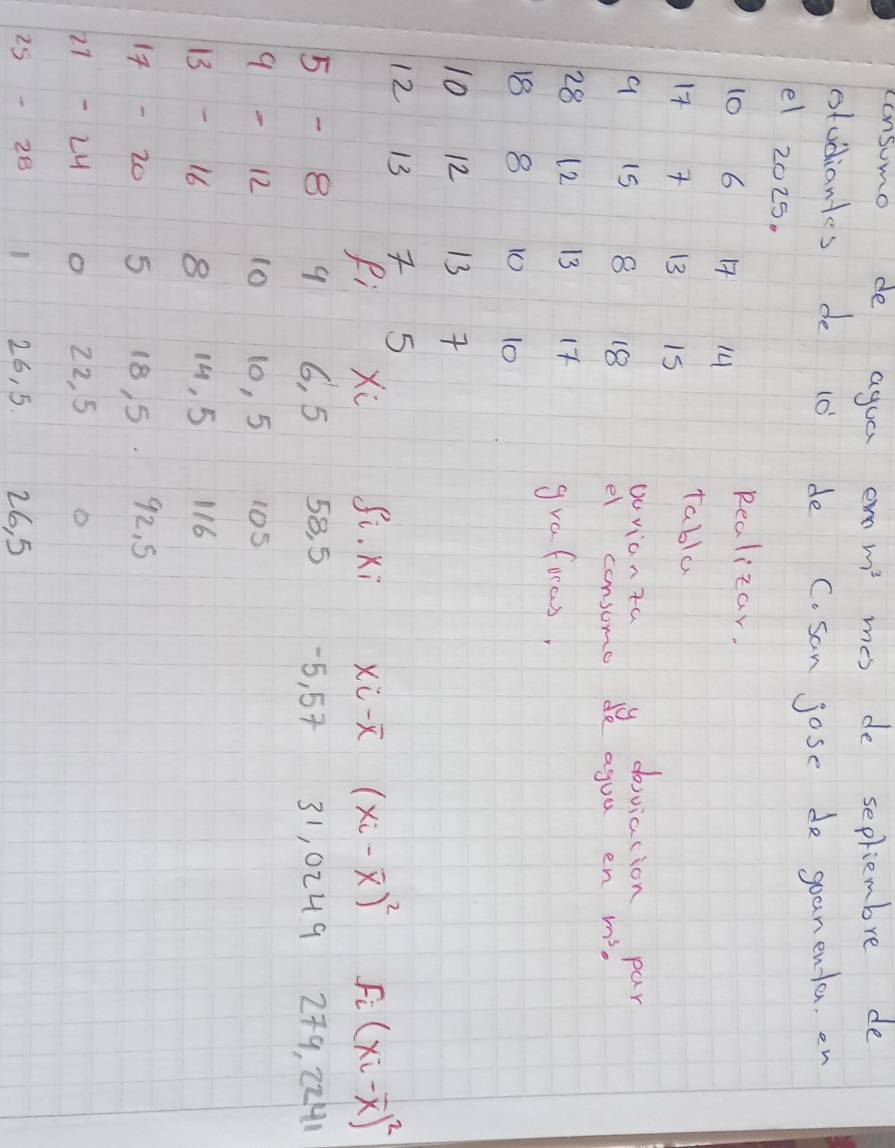 consumo de agua em m³ mes de septiembre de
estudiantes de 10 de C. San jose de guanenta. en
el 2025.
10 6 17 14
17 7 13 15
9 15 8 18
28 12 13 17
18 8 10 10
10 12 13 7
12 13 7 5
Realizar.
Tabla
varianza y desviacion par
el consumo de agua en m³.
graficas.
fi Xi fi.xi xi-x̄ (xi-x̄)² Fi(xi-x̄)²
5 - 8 9 6,5 58,5 -5,57 31,0249 279,2241
9 - 12 10 10,5 105
13 - 16 8 14,5 116
17 - 20 5 18,5. 92,5
21 - 24 0 22,5 0
25 - 28 1 26,5. 26,5